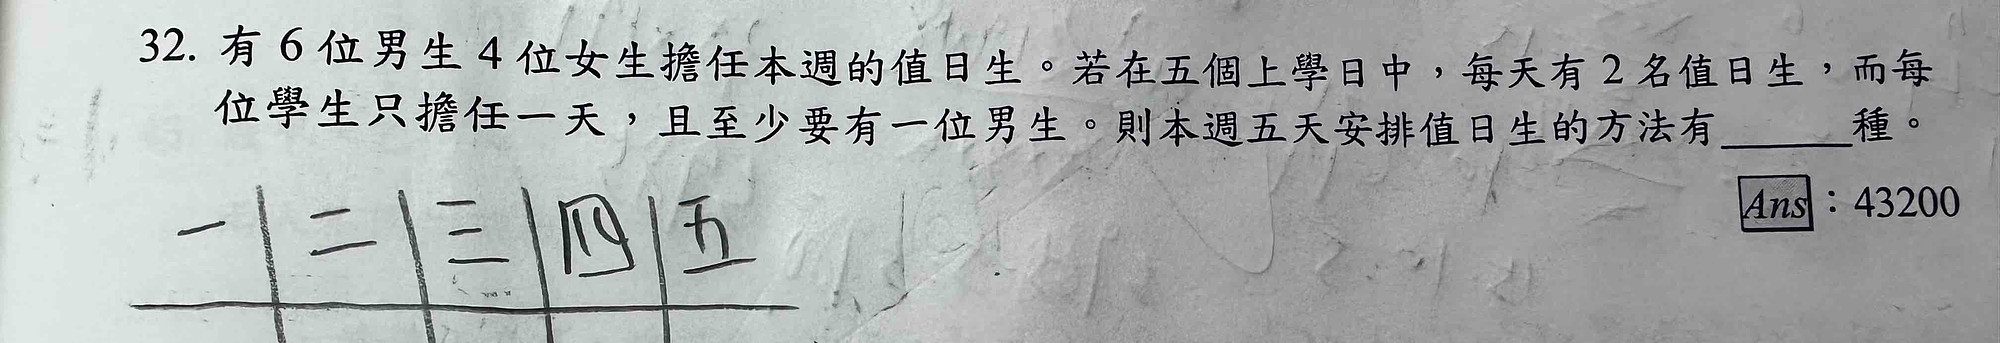 32. 有 6 位男生 4 位女生擔任本週的值日生。若在五個上學日中，每天有 2 名值日生，而每
位學生只擔任一天，且至少要有一位男生。則本週五天安排值日生的方法有______種。
Ans：43200
一 二 三 四 五